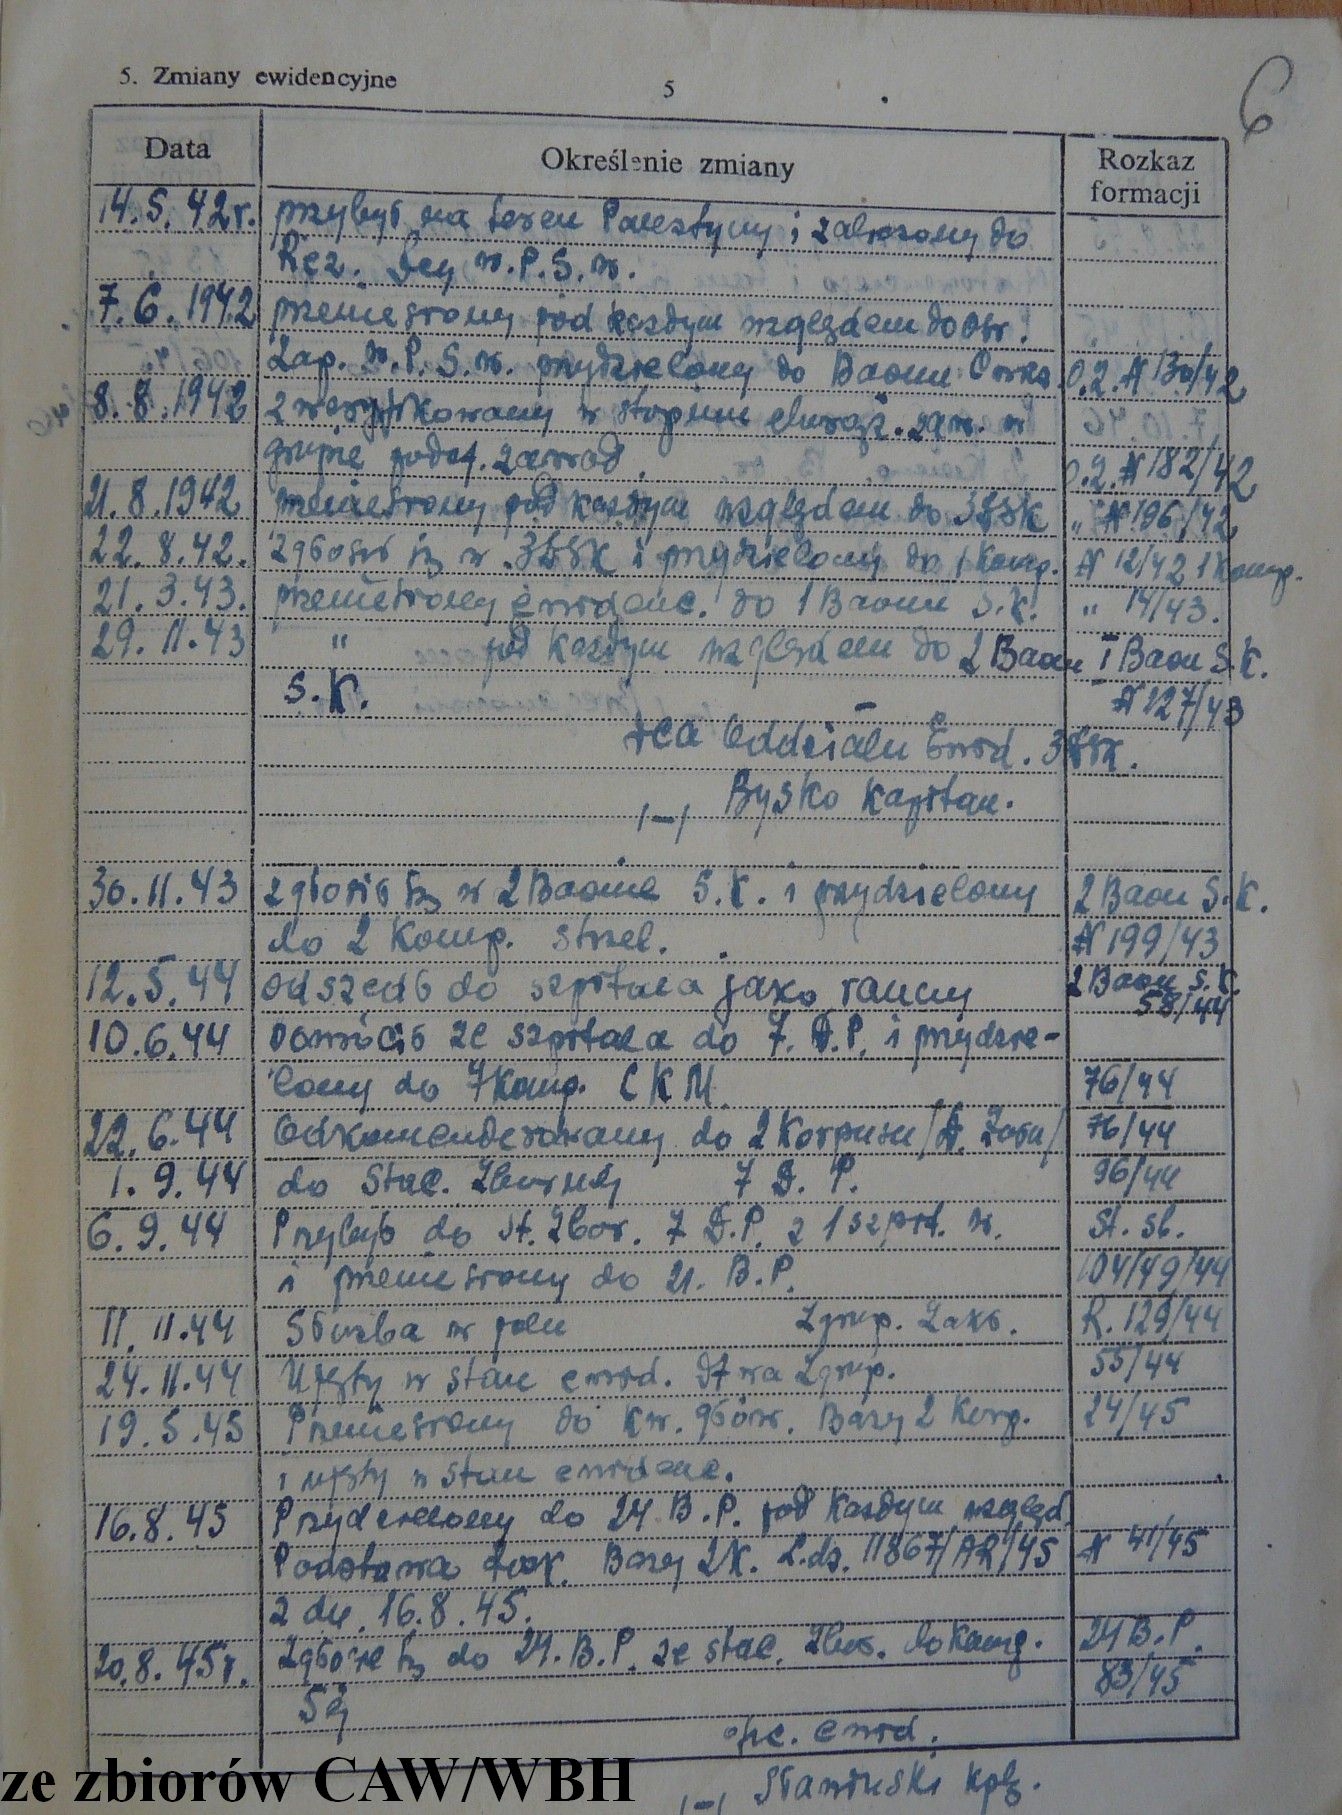 5. Zmiany ewidencyjne
5
6
Data
Określenie zmiany
Rozkaz formacji
14.5.42r. przybył na teren Palestyny i zaliczony do
Rez. Dcy W.P.S.W.
7.6.1942 przeniesiony pod każdym względem do Ośr.
Zap. W.P.S.W. przydzielony do Baonu O.Z. N 130/42
8.8.1942 zweryfikowany w stopniu chorąż. zaw. w
grupie podof. zawod. O.Z. N 182/42
21.8.1942 przeniesiony pod każdym względem do 3BSK " N 196/42
22.8.42. zgłosił się w 3BSK i przydzielony do 1 komp. N 12/42 1 komp.
21.3.43. przeniesiony ewidenc. do 1 Baonu S.K. " 14/43.
29.11.43 " pod każdym względem do 2 Baon I Baon S.K.
S.K. N 127/43
Dca Oddziału Ewid. 3BSK.
/-/ Bysko kapitan.
30.11.43 zgłosił się w 2 Baonie S.K. i przydzielony 2 Baon S.K.
do 2 Komp. strzel. N 199/43
12.5.44 odszedł do szpitala jako ranny 2 Baon S.K.
58/44
10.6.44 Powrócił ze szpitala do 7. D.P. i przydzie-
lony do 7 Komp. CKM. 76/44
22.6.44 Odkomenderowany do 2 Korpusu 76/44
1.9.44 do Stac. Zbornej 7 D.P. 96/44
6.9.44 Przybył do St. Zbor. 7 D.P. z 1 szpit. w. St. sb.
i przeniesiony do 21. B.P. 104/49/44
11.11.44 Służba w polu Zgrup. Zakł. R. 129/44
24.11.44 Ujęty w stan ewid. D-twa Zgrup. 55/44
19.5.45 Przeniesiony do kw. głów. Bazy 2 Korp. 24/45
i ujęty w stan ewidenc.
16.8.45 Przydzielony do 24 B.P. pod każdym wzgléd.
Podstawa Bazy 2K. L.dz. 11867/AR/45 N 41/45
z dn. 16.8.45.
20.8.45r. Zgłosił się do 24. B.P. ze stac. Zbor. do komp. 24 B.P.
Sż 83/45
ofic. ewid.
/-/ kpt.
ze zbiorów CAW/WBH